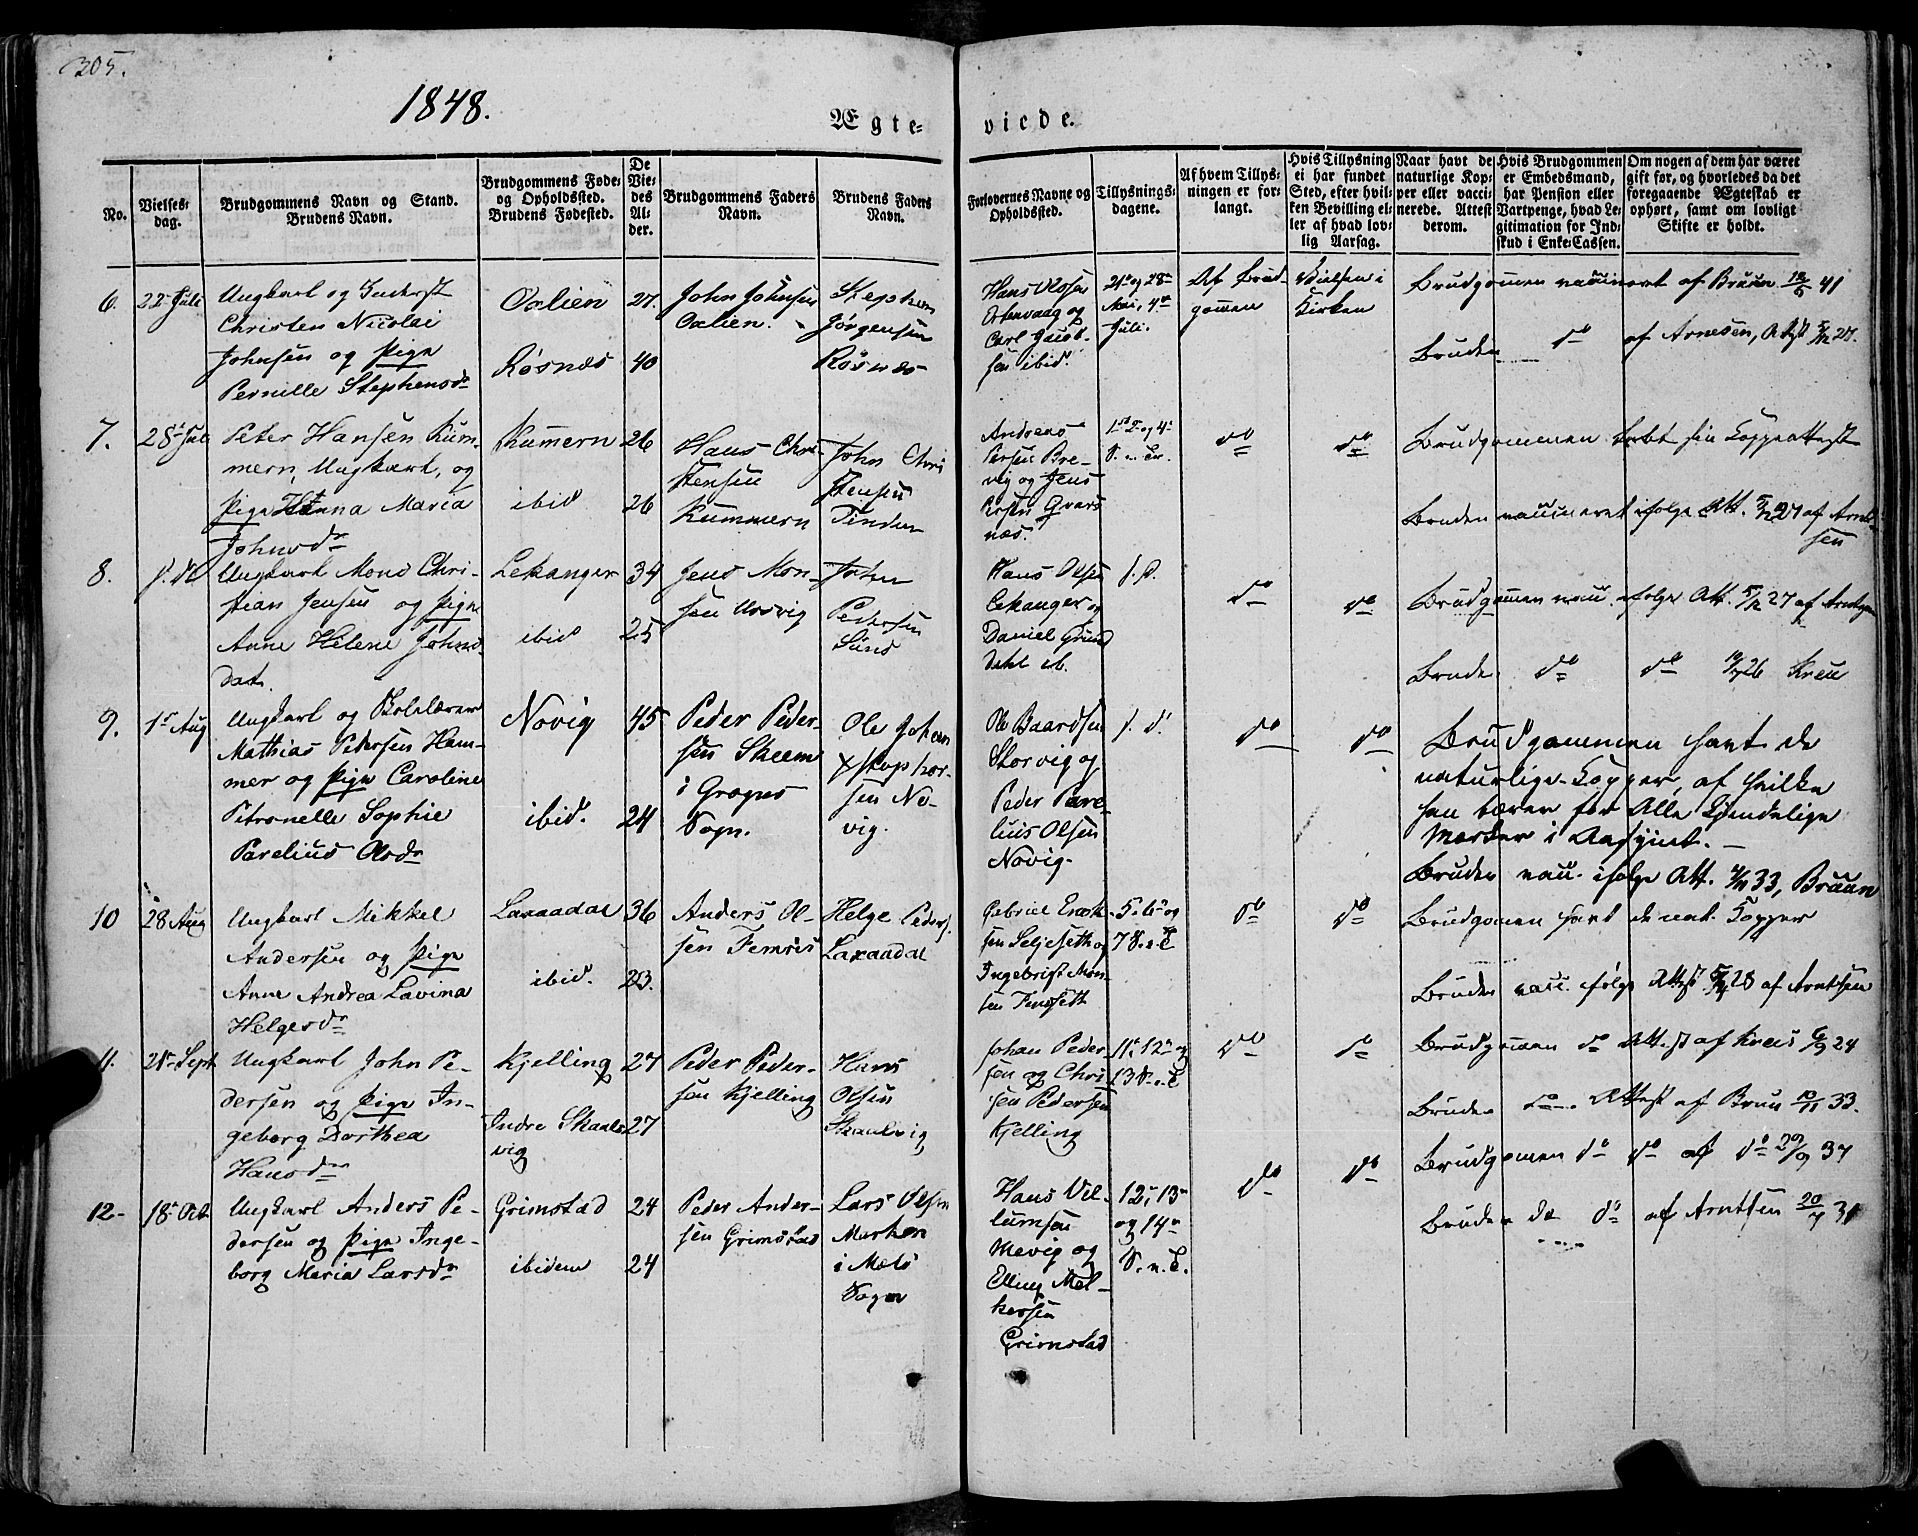 305.
1848.
Ægte-
viede.
No.
Vielses-
dag.
Brudgommens Navn og Stand.
Brudens Navn.
Brudgommens Føde-
og Opholdssted.
Brudens Fødested.
De
Vie-
des
Al-
der.
Brudgommens Faders
Navn.
Brudens Faders
Navn.
Forlovernes Navne og
Opholdssted.
Tillysnings-
dagene.
Af hvem Tillys-
ningen er for-
langt.
Hvis Tillysning
ei har fundet
Sted, efter hvil-
ken Bevilling el-
ler af hvad lov-
lig Aarsag.
Naar havt de
naturlige Kop-
per eller vacci-
nerede. Attest
derom.
Hvis Brudgommen
er Embedsmand,
har Pension eller
Vartpenge, hvad Le-
gitimation for Ind-
skud i Enke-Cassen.
Om nogen af dem har været
gift før, og hvorledes da det
foregaaende Ægteskab er
ophørt, samt om lovligt
Skifte er holdt.
6.
22 Juli
Ungkarl og Inderst
Christen Nicolai
Johnsen og Pige
Pernille Stephensdr
Oxlien
Røsnæs
27.
40
John Johnsen
Oxlien.
Stephen
Jørgensen
Røsnæs
Hans Olsen
Carl Jacob-
sen ibid.
21 og 28
Mai, 4
Juli.
Af Brud-
gommen
Vielsen i
Kirken
Brudgommen vaccineret af Bruun 41
Bruden do af Arnesen, Attest 27.
7.
28 Juli
Peter Hansen Kum-
mern, Ungkarl, og
Pige Hanna Maria
Johnsdr
Kumern
ibid
26
26
Hans Chri-
stensen
Kummern
John Chri
stensen
Tinden
Andreas
Persen Bre-
vig og Jens
Persen Qvars
næs.
1st 2 og 4
S. n. Tr.
do
do
Brudgommen tabt sin Koppeattest
Bruden vaccineret ifølge Att. 27 af Arnt-
sen
8.
s. D.
Ungkarl Mons Chri-
stian Jensen og Pige
Anne Helene Johns-
dat.
Lekanger
ibid
34
25
Jens Mon-
sen Uvsvig
John
Pedersen
Sund
Hans Olsen
Lekanger og
Daniel Grund
dahl ib.
s. D.
do
do
Brudgommen vacc. ifølge Att. 5/12 27 af Arntsen
Bruden do do 26 Kreu
9.
1st Aug
Ungkarl og Skolelærer
Mathias Pedersen Ham-
mer og Pige Caroline
Petronelle Sophie
Parelius Olsdr
Novig
ibid.
45
24
Peder Peder-
sen Skeem
i Grognes
Sogn.
Ole Johan
Xstophor-
sen No-
vig.
Ole Baardsen
Storvig og
Peder Pare-
lius Olsen
Novig.
s. d.
do
do
Brudgommen havt de
naturlige Kopper, af hvilke
han bærer for Alle kjendelige
Mærker i Ansigtet.
Bruden vacc. ifølge Att. 33, Bruun
10
28 Aug
Ungkarl Mikkel
Andersen og Pige
Anne Andrea Lavina
Helgesdr
Laxaadal
ibid.
36
23.
Anders Ol-
sen Femris
Helge Peders.
Laxaadal
Gabriel Enok-
sen Seljeseth og
Ingebrigt Mon-
sen Finseth
5. 6 og
7 S. n. T
do
do
Brudgommen havt de nat. Kopper
Bruden vacc. ifølge Attest 28 af Arntsen
11.
28 Sept
Ungkarl John Pe-
dersen og Pige In-
geborg Dorthea
Hansdr
Kjelling
Indre Skaals
vig
27
27
Peder Peder-
sen Kjelling
Hans
Olsen
Skaalsvig
Johan Peder
sen og Chri
sen Pedersen
Kjelling
11, 12 og
13 S. n. T
do
do
Brudgommen do Attest af Kreis 6/9 24
Bruden do Attest af Bruun 10/11 33.
12-
18 Oct.
Ungkarl Anders Pe-
dersen og Pige Inge-
borg Maria Larsdr
Grimstad
ibidem
24
24
Peder Ander-
sen Grimstad
Lars Olsen
Marken
i Melø
Sogn
Hans Vil-
lumsen
Mevig og
Elling Mel-
kersen
Grimstad
12, 13
og 14
S. n. T.
do
do
Brudgommen do do af do 29/9 37
Bruden do do af Arntsen 20/7 31